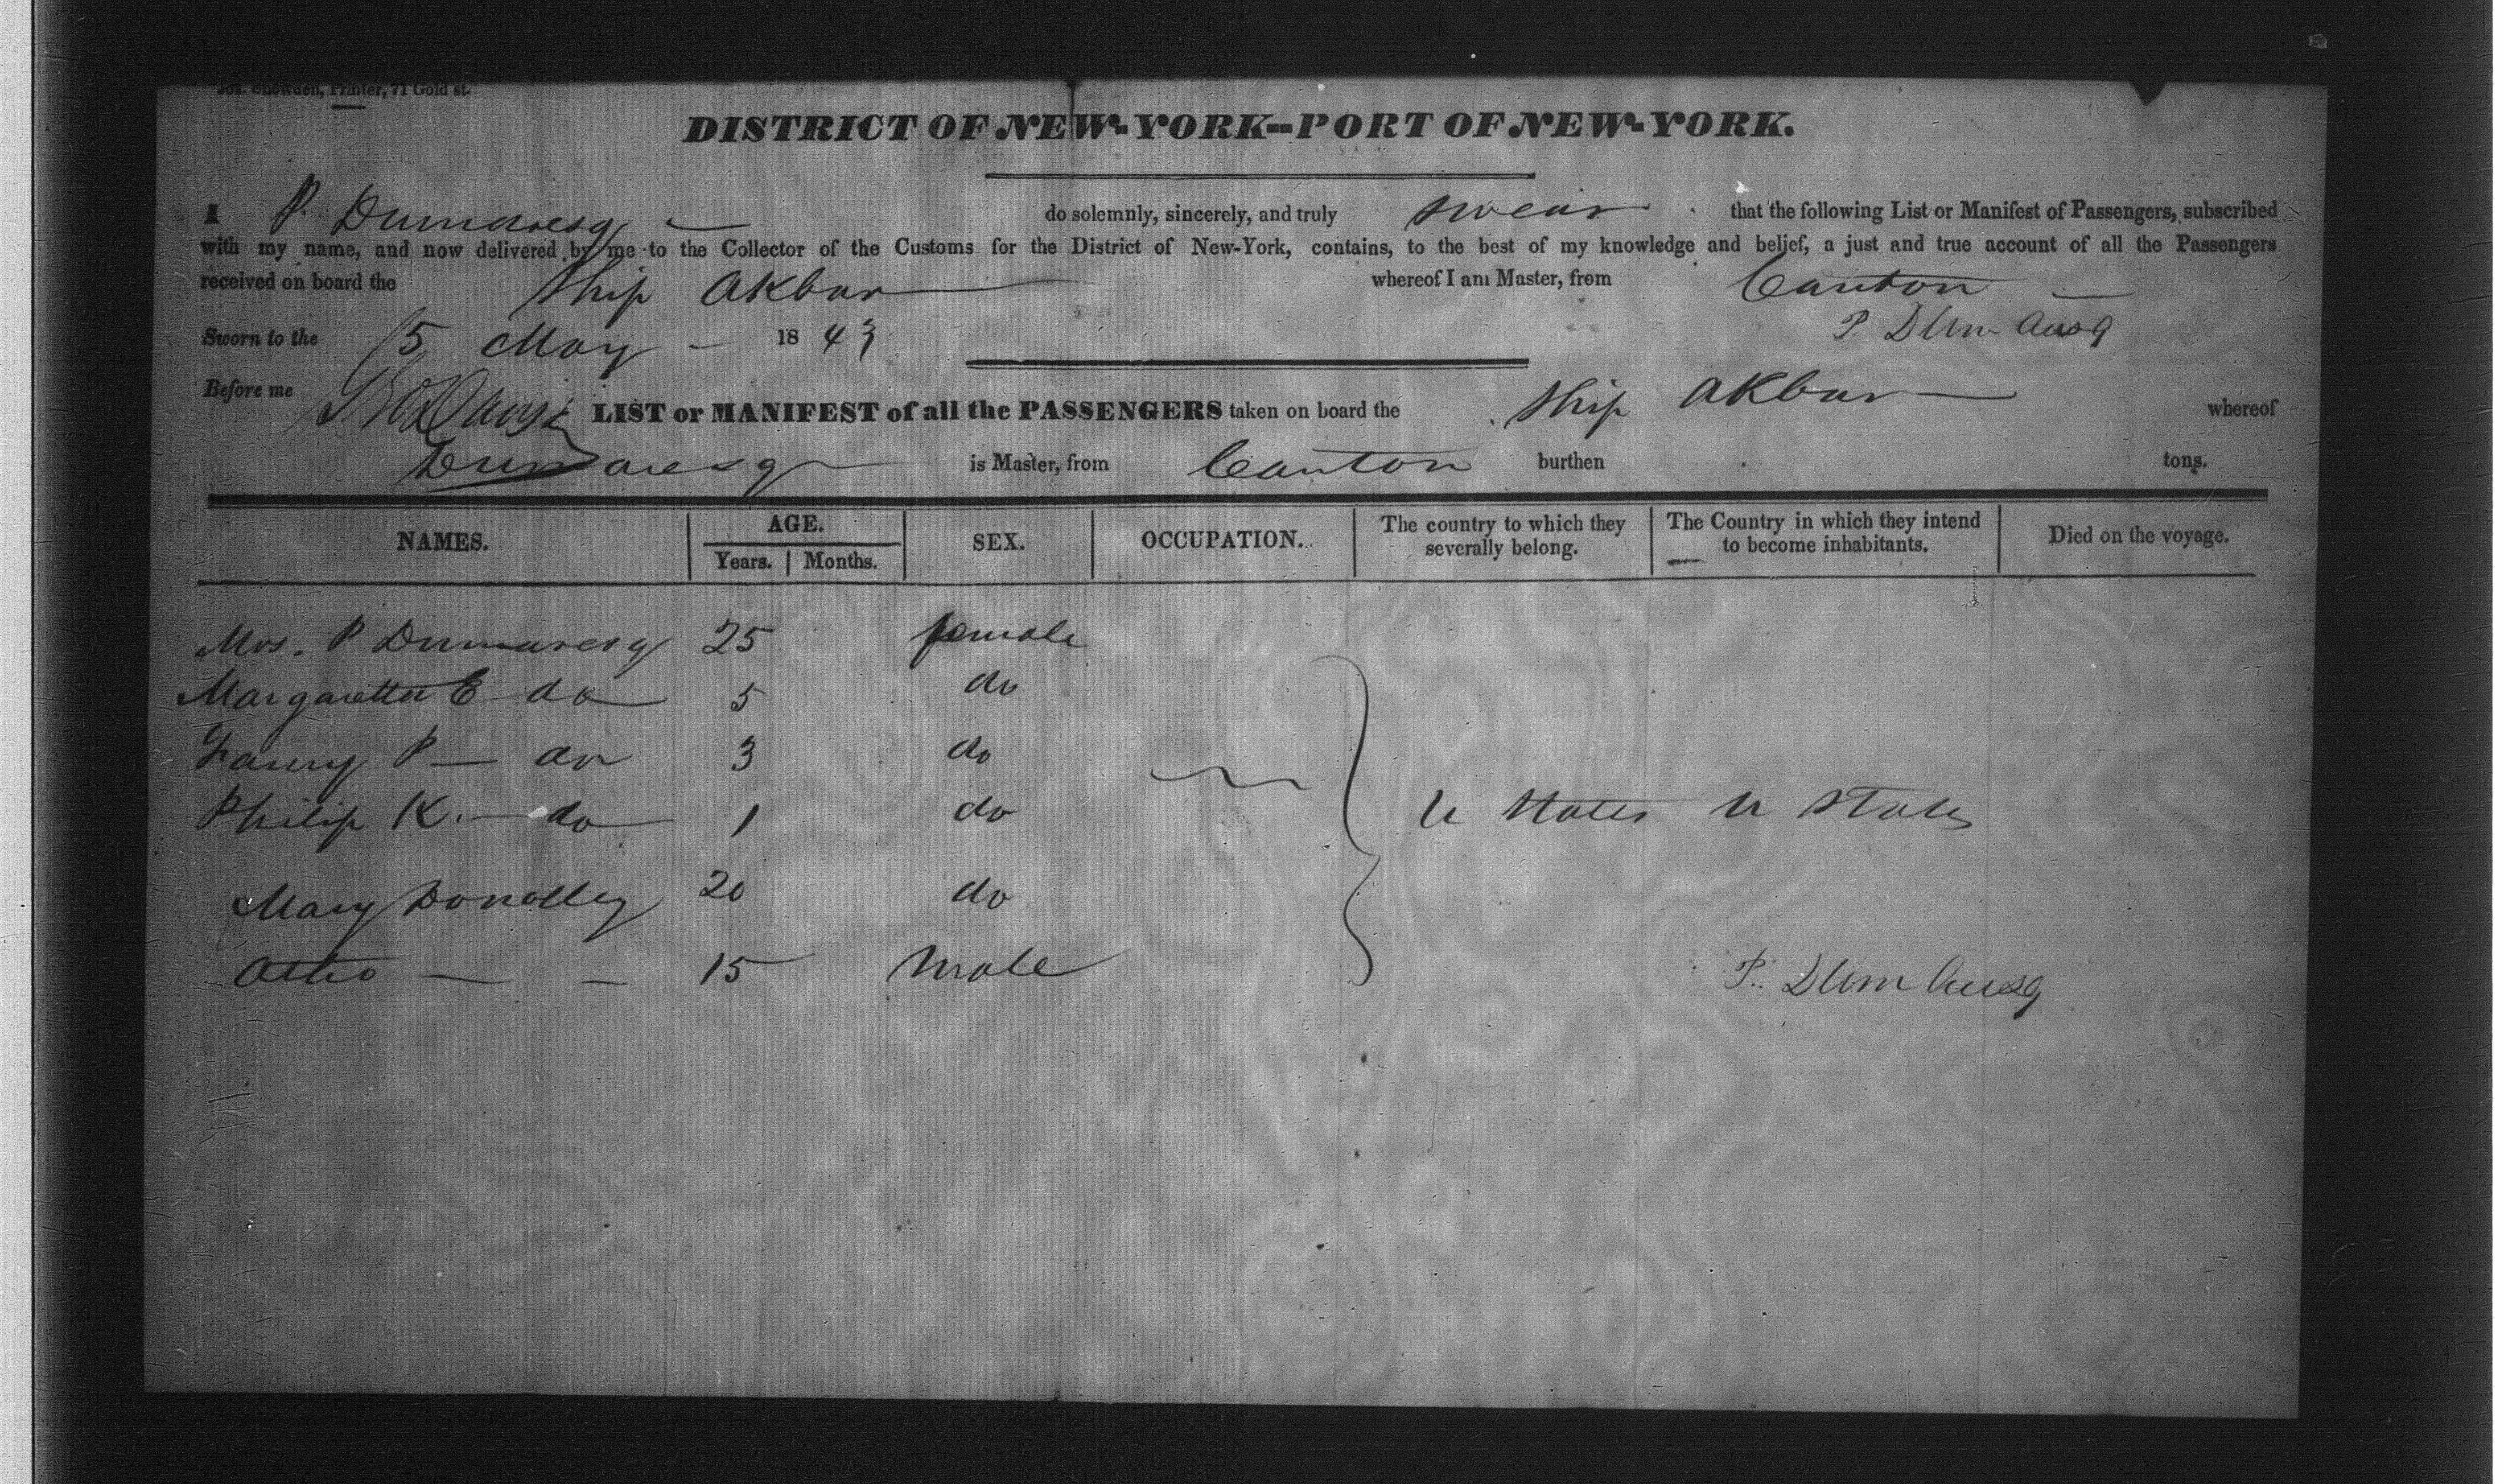 Jos. Snowden, Printer, 71 Gold st.
DISTRICT OF NEW-YORK--PORT OF NEW-YORK.
I P. Dumaresq do solemnly, sincerely, and truly swear that the following List or Manifest of Passengers, subscribed
with my name, and now delivered by me to the Collector of the Customs for the District of New-York, contains, to the best of my knowledge and belief, a just and true account of all the Passengers
received on board the Ship Akbar whereof I am Master, from Canton
P. Dumaresq
Sworn to the 15 May 1843
Before me
LIST or MANIFEST of all the PASSENGERS taken on board the Ship Akbar whereof
Dumaresq is Master, from Canton burthen tons.
NAMES. AGE. Years. Months. SEX. OCCUPATION. The country to which they severally belong. The Country in which they intend to become inhabitants. Died on the voyage.
Mrs. P Dumaresq 25 female
Margaretta E do 5 do
Fanny P — do 3 do
Philip K. — do 1 do
U States U States
Mary Donolley 20 do
15 male
P. Dumaresq